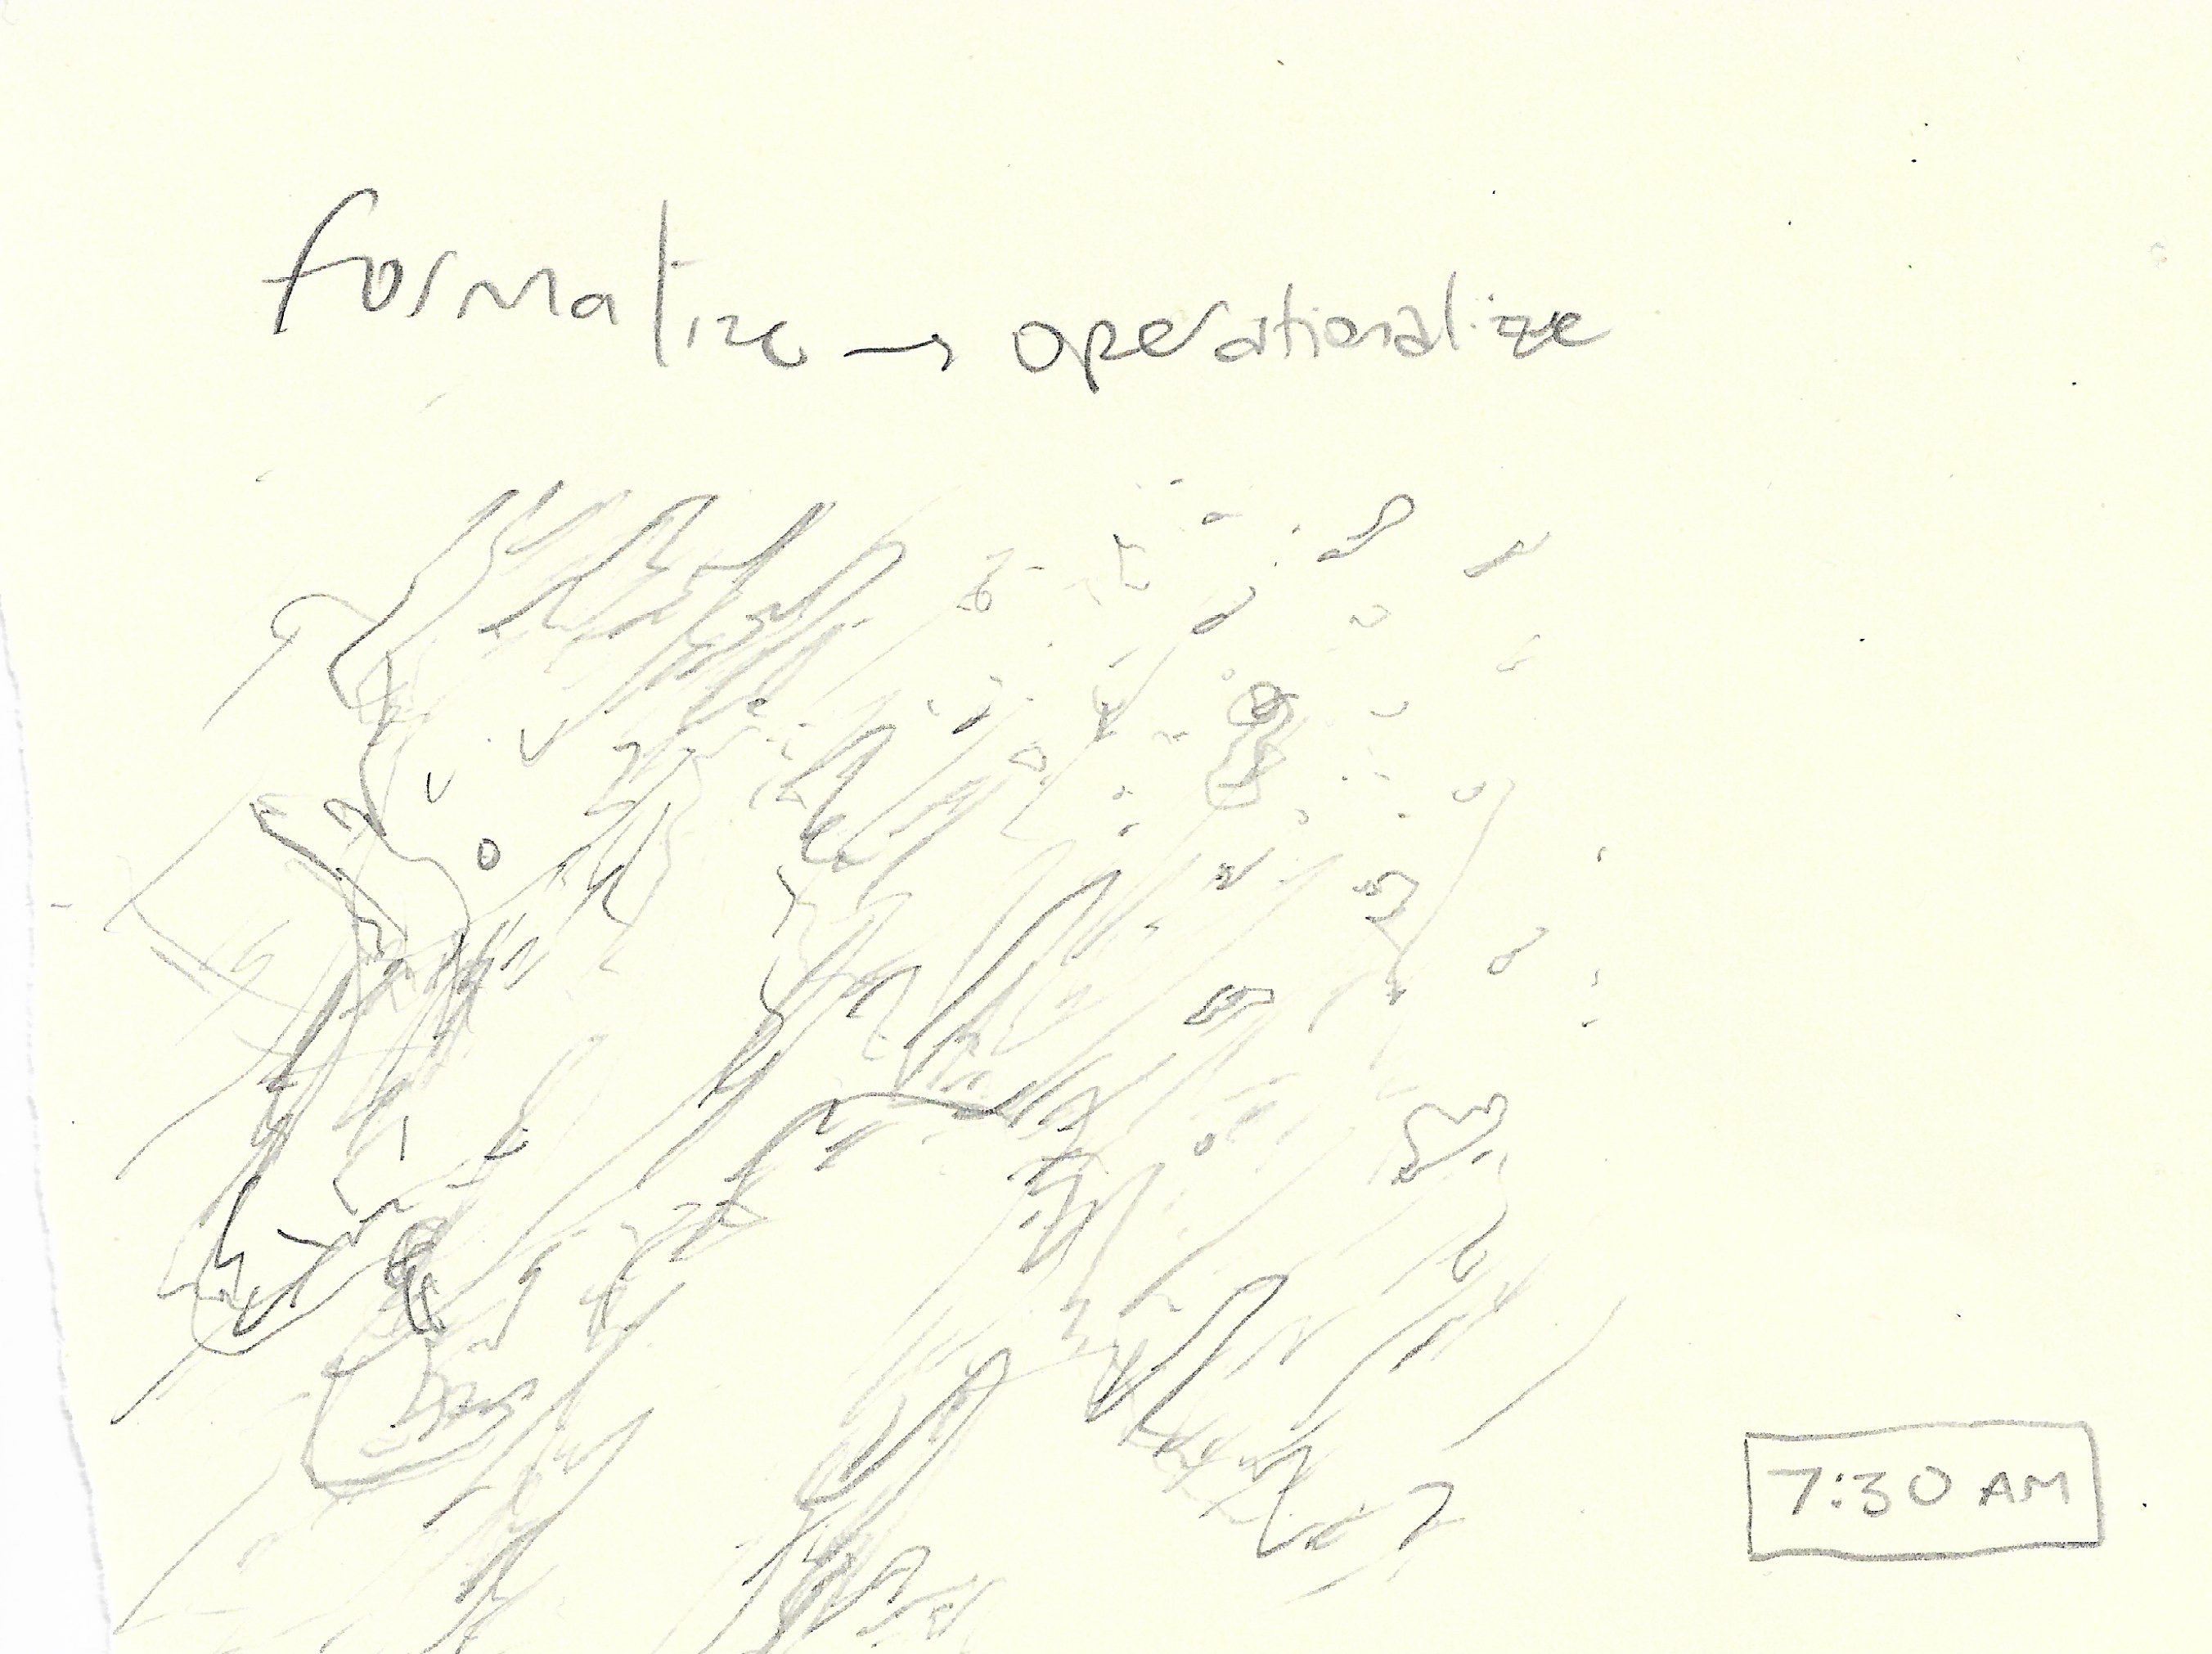 formalize → operationalize
7:30 AM